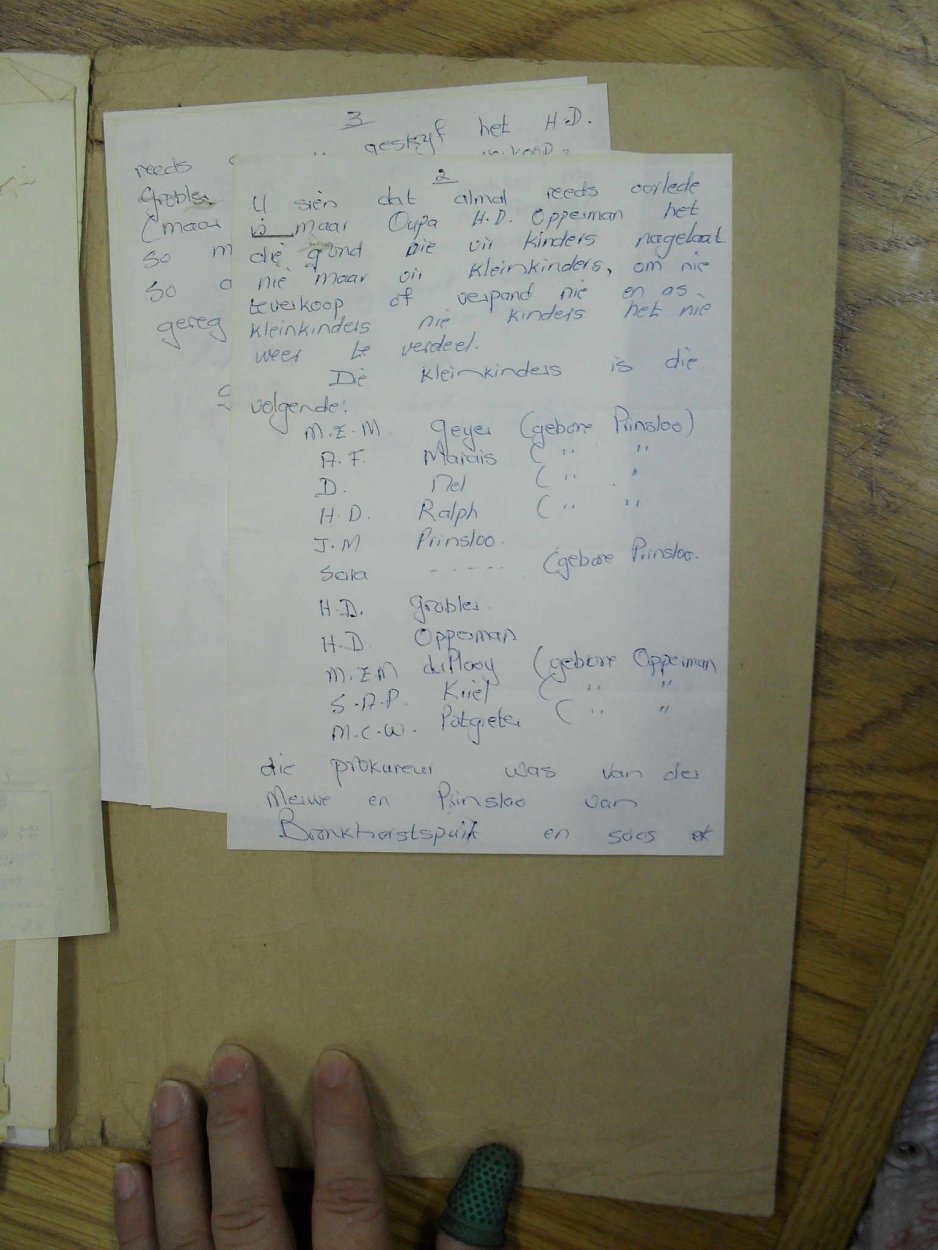 3
reeds geskryf het H.D.
Grobler
(maar
so m
so
gereg
2
U sien dat almal reeds oorlede
is maar Oupa H.D. Opperman het
die grond nie vir kinders nagelaat
nie maar vir kleinkinders, om nie
teverkoop of verpand nie en as
kleinkinders nie kinders het nie
weer te verdeel.
Die kleinkinders is die
volgende:
M.E.M. Geyer (gebore Prinsloo)
A.F. Marais ( " "
D. Nel ( " "
H.D. Ralph ( " "
J.M Prinsloo.
Sara ----- (gebore Prinsloo.
H.D. Grobler.
H.D. Opperman
M.E.M duPlooy (gebore Opperman
S.A.P. Kriel ( " "
M.C.W. Potgieter ( " "
die prokureur was van der
Merwe en Prinsloo van
Bronkhorstspuit en soos